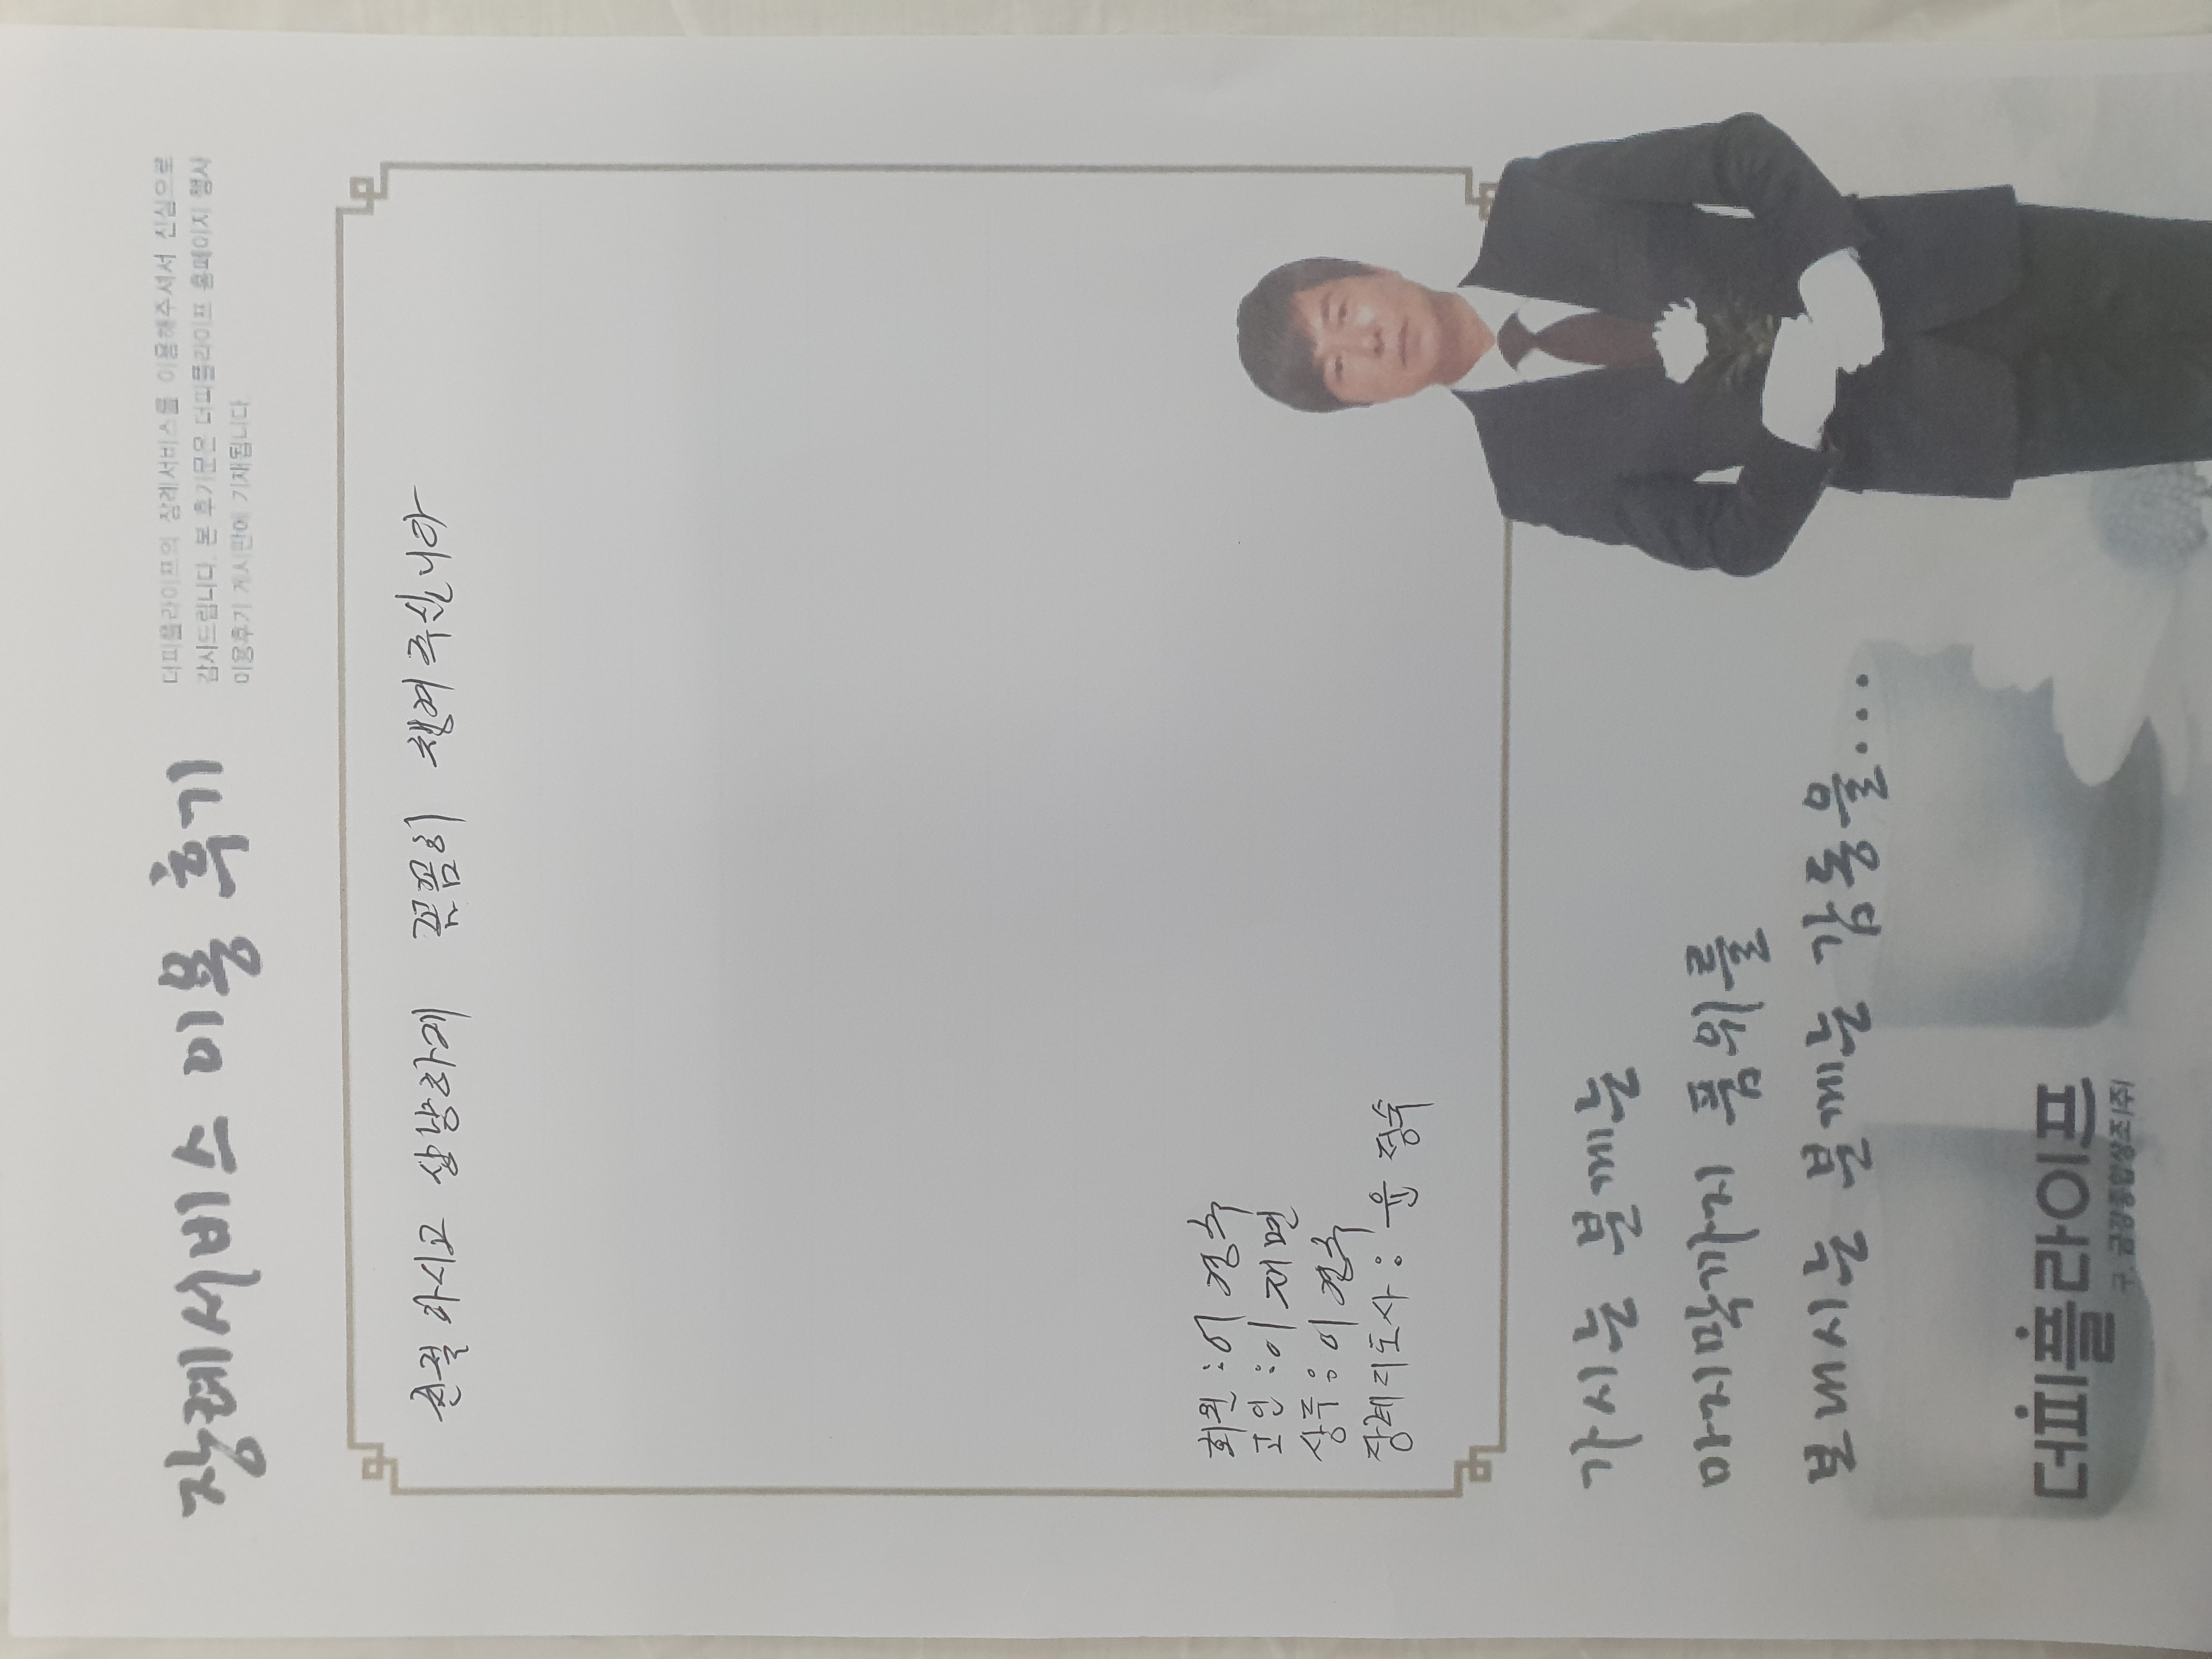 장례서비스 이용 후기
더피플라이프의 장례서비스를 이용해주셔서 진심으로
감사드립니다. 본 후기문은 더피플라이프 홈페이지 행사
이용후기 게시판에 기재됩니다.
친절 하시고 상냥하게 꼼꼼히 챙겨주신니아
회원 : 이 경수
고인 : 이 재면
상주 : 이 경수
장례지도사 : 윤 정숙
가시는 분께는
마지막까지 품위를
보내시는 분께는 감동을...
더피플라이프
구.금강종합상조(주)